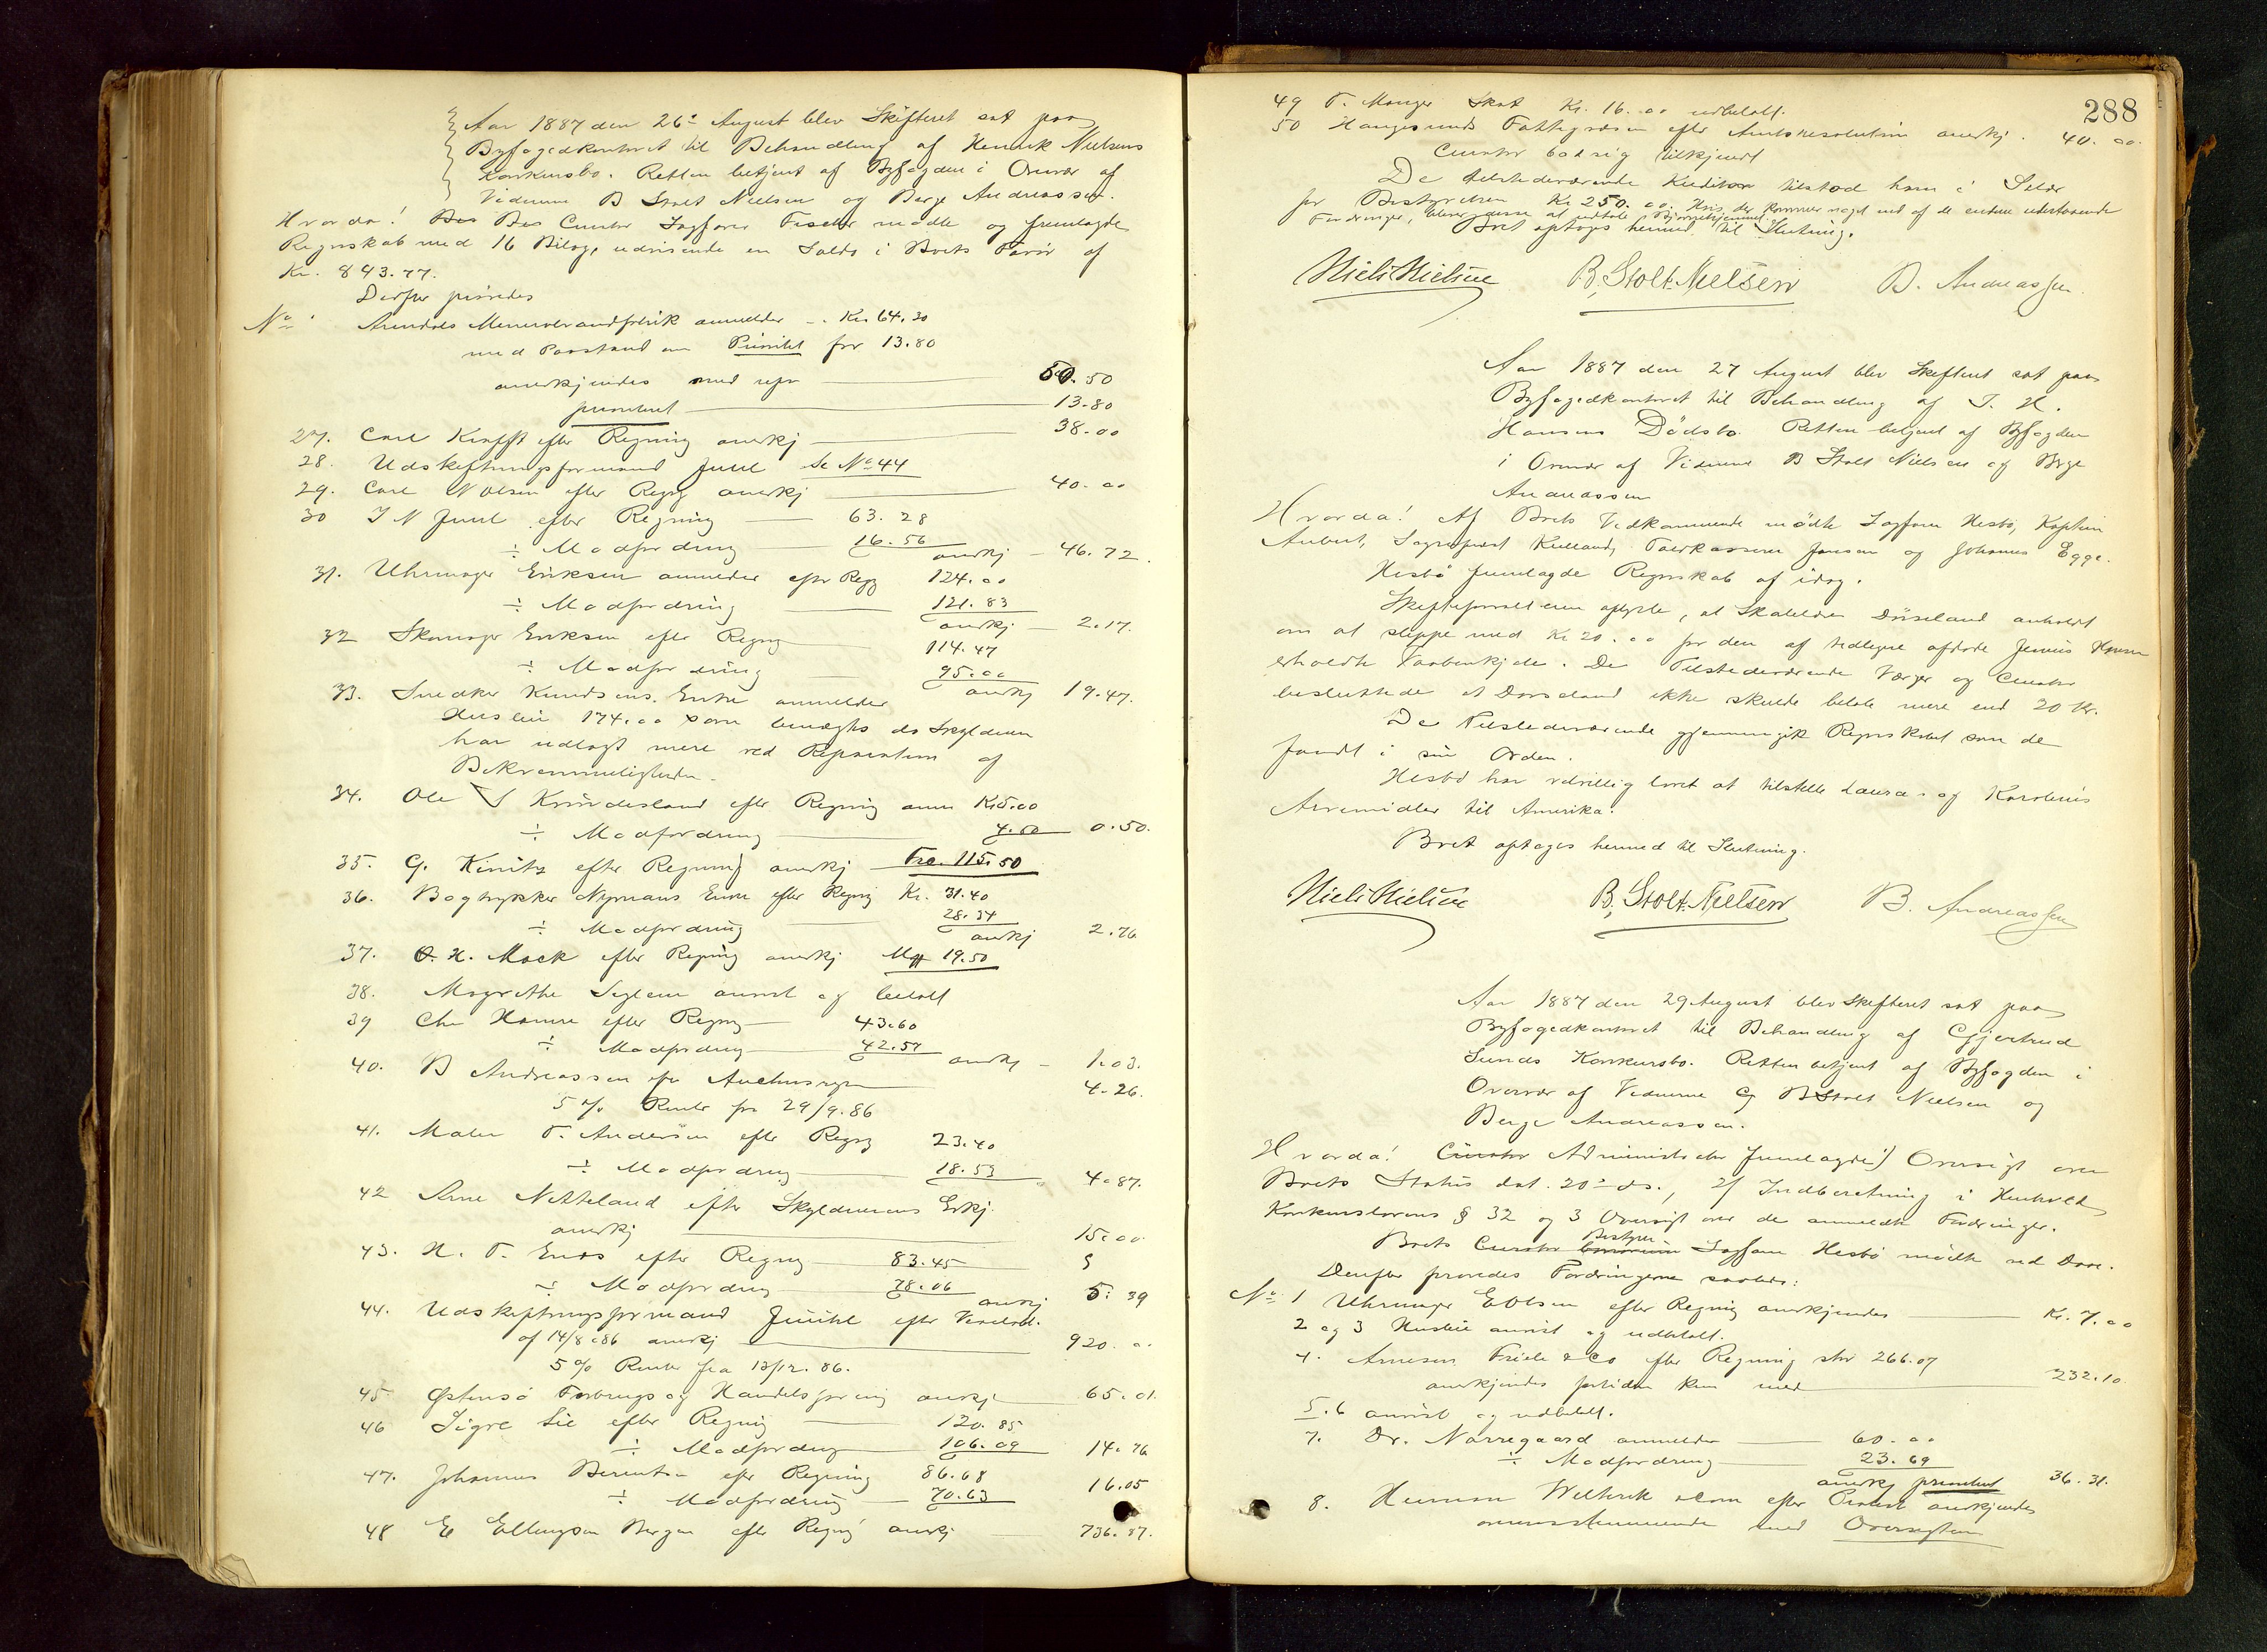 Aar 1887 den 26de August blev Skifteret sat paa
Byfogedkontoret til Behandling af Henrik Nielsens
Konkursbo. Retten betjent af Byfogden i Overvær af
Vidnerne B Stolt Nielsen og Berge Andreassen.
Hvorda! Boets Curator Sagfører mødte og fremlagde
Regnskab med 16 Bilag, udvisende en Saldo i Boets Favør af
Kr. 843.77.
Derpaa prøvedes
No Arendals anmelder - Kr. 64.30
med Paastand om Prioritet for 13.80
anerkjendes med 50.50
prioritet 13.80
27. Carl Krafft efter Regning anerkj 38.00
28. Udskiftningsformand Juul Se No 44
29. Carl N Olsen efter Regng anerkj 40.00
30 I N Juul efter Regning 63.28
÷ Modfordring 16.56 anerkj - 46.72.
31. Uhrmager Eriksen anmelder efter Regg 124.00
÷ Modfordring 121.83 anerkj - 2.17.
32 Skomager Eriksen efter Regng 114.47
÷ Modfordring 95.00 anerkj 19.47.
33. Snedker Knudsens Enke anmelder
Husleie 174.00 som benægtes da Skyldneren
har udlagt mere ved Reparation af
Bekvemmeligheden.
34. Ole efter Regning anm Kr 5.00
÷ Modfordring 4.50 0.50.
35. G. Kinitz efter Regning anerkj Frc. 115.50
36. Bogtrykker Nymans Enke efter Regnig Kr. 31.40
÷ Modfordring 28.34 anerkj 2.76
37. O. H. Mack efter Regning anerkj Mk 19.50
38. Magrethe anvist og betalt
39 Chr Hansen efter Regng 43.60
÷ Modfordring 42.57 anerkj - 1.03.
40. B Andreassen for 4.26.
5 % Rente fra 29/9.86
41. Maler T. Andersen efter Regng 23.40
÷ Modfordring 18.53 4.87.
42 Arne Netteland efter Skyldnerens Erkj.
anerkj 15.00
43. H. T. Enes efter Regng 83.45
÷ Modfordring 78.06 anerkj 5.39
44. Udskiftningsformand Juuhl efter
af 14/8.86 anerkj 920.00
5 % Rente fra 13/12.86.
45 Østensø Forbrugs og Handelsforening anerkj 65.01.
46 Sigve Lie efter Regning 120.85
÷ Modfordring 106.09 14.76
47. Johannes Berentsen efter Regning 86.68
÷ Modfordring 70.63 16.05
48 E Ellingsen Bergen efter Regng anerkj 736.87.
288
49 T. Monger Skat Kr. 16.00 udbetalt.
50 Haugesunds Fattigvæsen efter Amtsresolution anerkj. 40.00.
Curator bad sig tilkjendt
De tilstedeværende Kreditorer tilstod ham i Salær
for Bestyrelsen Kr 250.00. Hvis der kommer noget ind af de endnu udestaaende
Fordringer, bliver disse at udbetale
Boet optoges hermed til Slutning.
Niels Nielsen B. Stolt-Nielsen B. Andreassen
Aar 1887 den 27 August blev Skifteret sat paa
Byfogedkontoret til Behandling af T. H.
Hansens Dødsbo. Retten betjent af Byfogden
i Overvær af Vidnerne B Stolt Nielsen og Berge
Andreassen
Hvorda! Af Boets Vedkommende mødte Sagfører Hesbø, Kaptein
Aubert, Sogneprest Kielland, Toldkasserer Jansen og Johannes Egge.
Hesbø fremlagde Regnskab af idag.
Skifteforvalteren oplyste, at Skolelærer Dørseland anholdt
om at slippe med Kr 20.00 for den af nedlagne afdøde Hansen
erholdte. De Tilstedeværende Værger og Curator
besluttede at Dørseland ikke skulde betale mere end 20 Kr.
De Tilstedeværende gjennemgik Regnskabet som de
fandt i sin Orden.
Hesbø har velvillig lovet at tilstille Laura- og Karolines
Arvemidler til Amerika.
Boet optoges hermed til Slutning.
Niels Nielsen B. Stolt-Nielsen B. Andreassen
Aar 1887 den 29 August blev Skifteret sat paa
Byfogedkontoret til Behandling af Gjertrud
Lunds Konkursbo. Retten betjent af Byfogden i
Overvær af Vidnerne B Stolt Nielsen og
Berge Andreassen.
Hvorda! Administrator fremlagde 1) Oversigt over
Boets Status dat. 20de ds., 2) Indberetning i Henhold
Konkurslovens § 32 og 3 Oversigt over de anmeldte Fordringer.
Boets Bestyrer Sagfører Hesbø mødte ved Døre.
Derefter prøvedes Fordringerne saaledes:
No 1 Uhrmager E Olsen efter Regning anerkjendes Kr. 7.00
2 og 3 Husleie anvist og udbetalt.
4. Arnesen Friele & Co efter Regning stor 266.07
anerkjendes kun med 232.10.
5.6 anvist og udbetalt.
7. Dr. Nørregaard anmelder 60.00
÷ Modfordring 23.69
anerkj prioritet 36.31.
8. Herman efter anerkjendes
overensstemmende med Oversigten